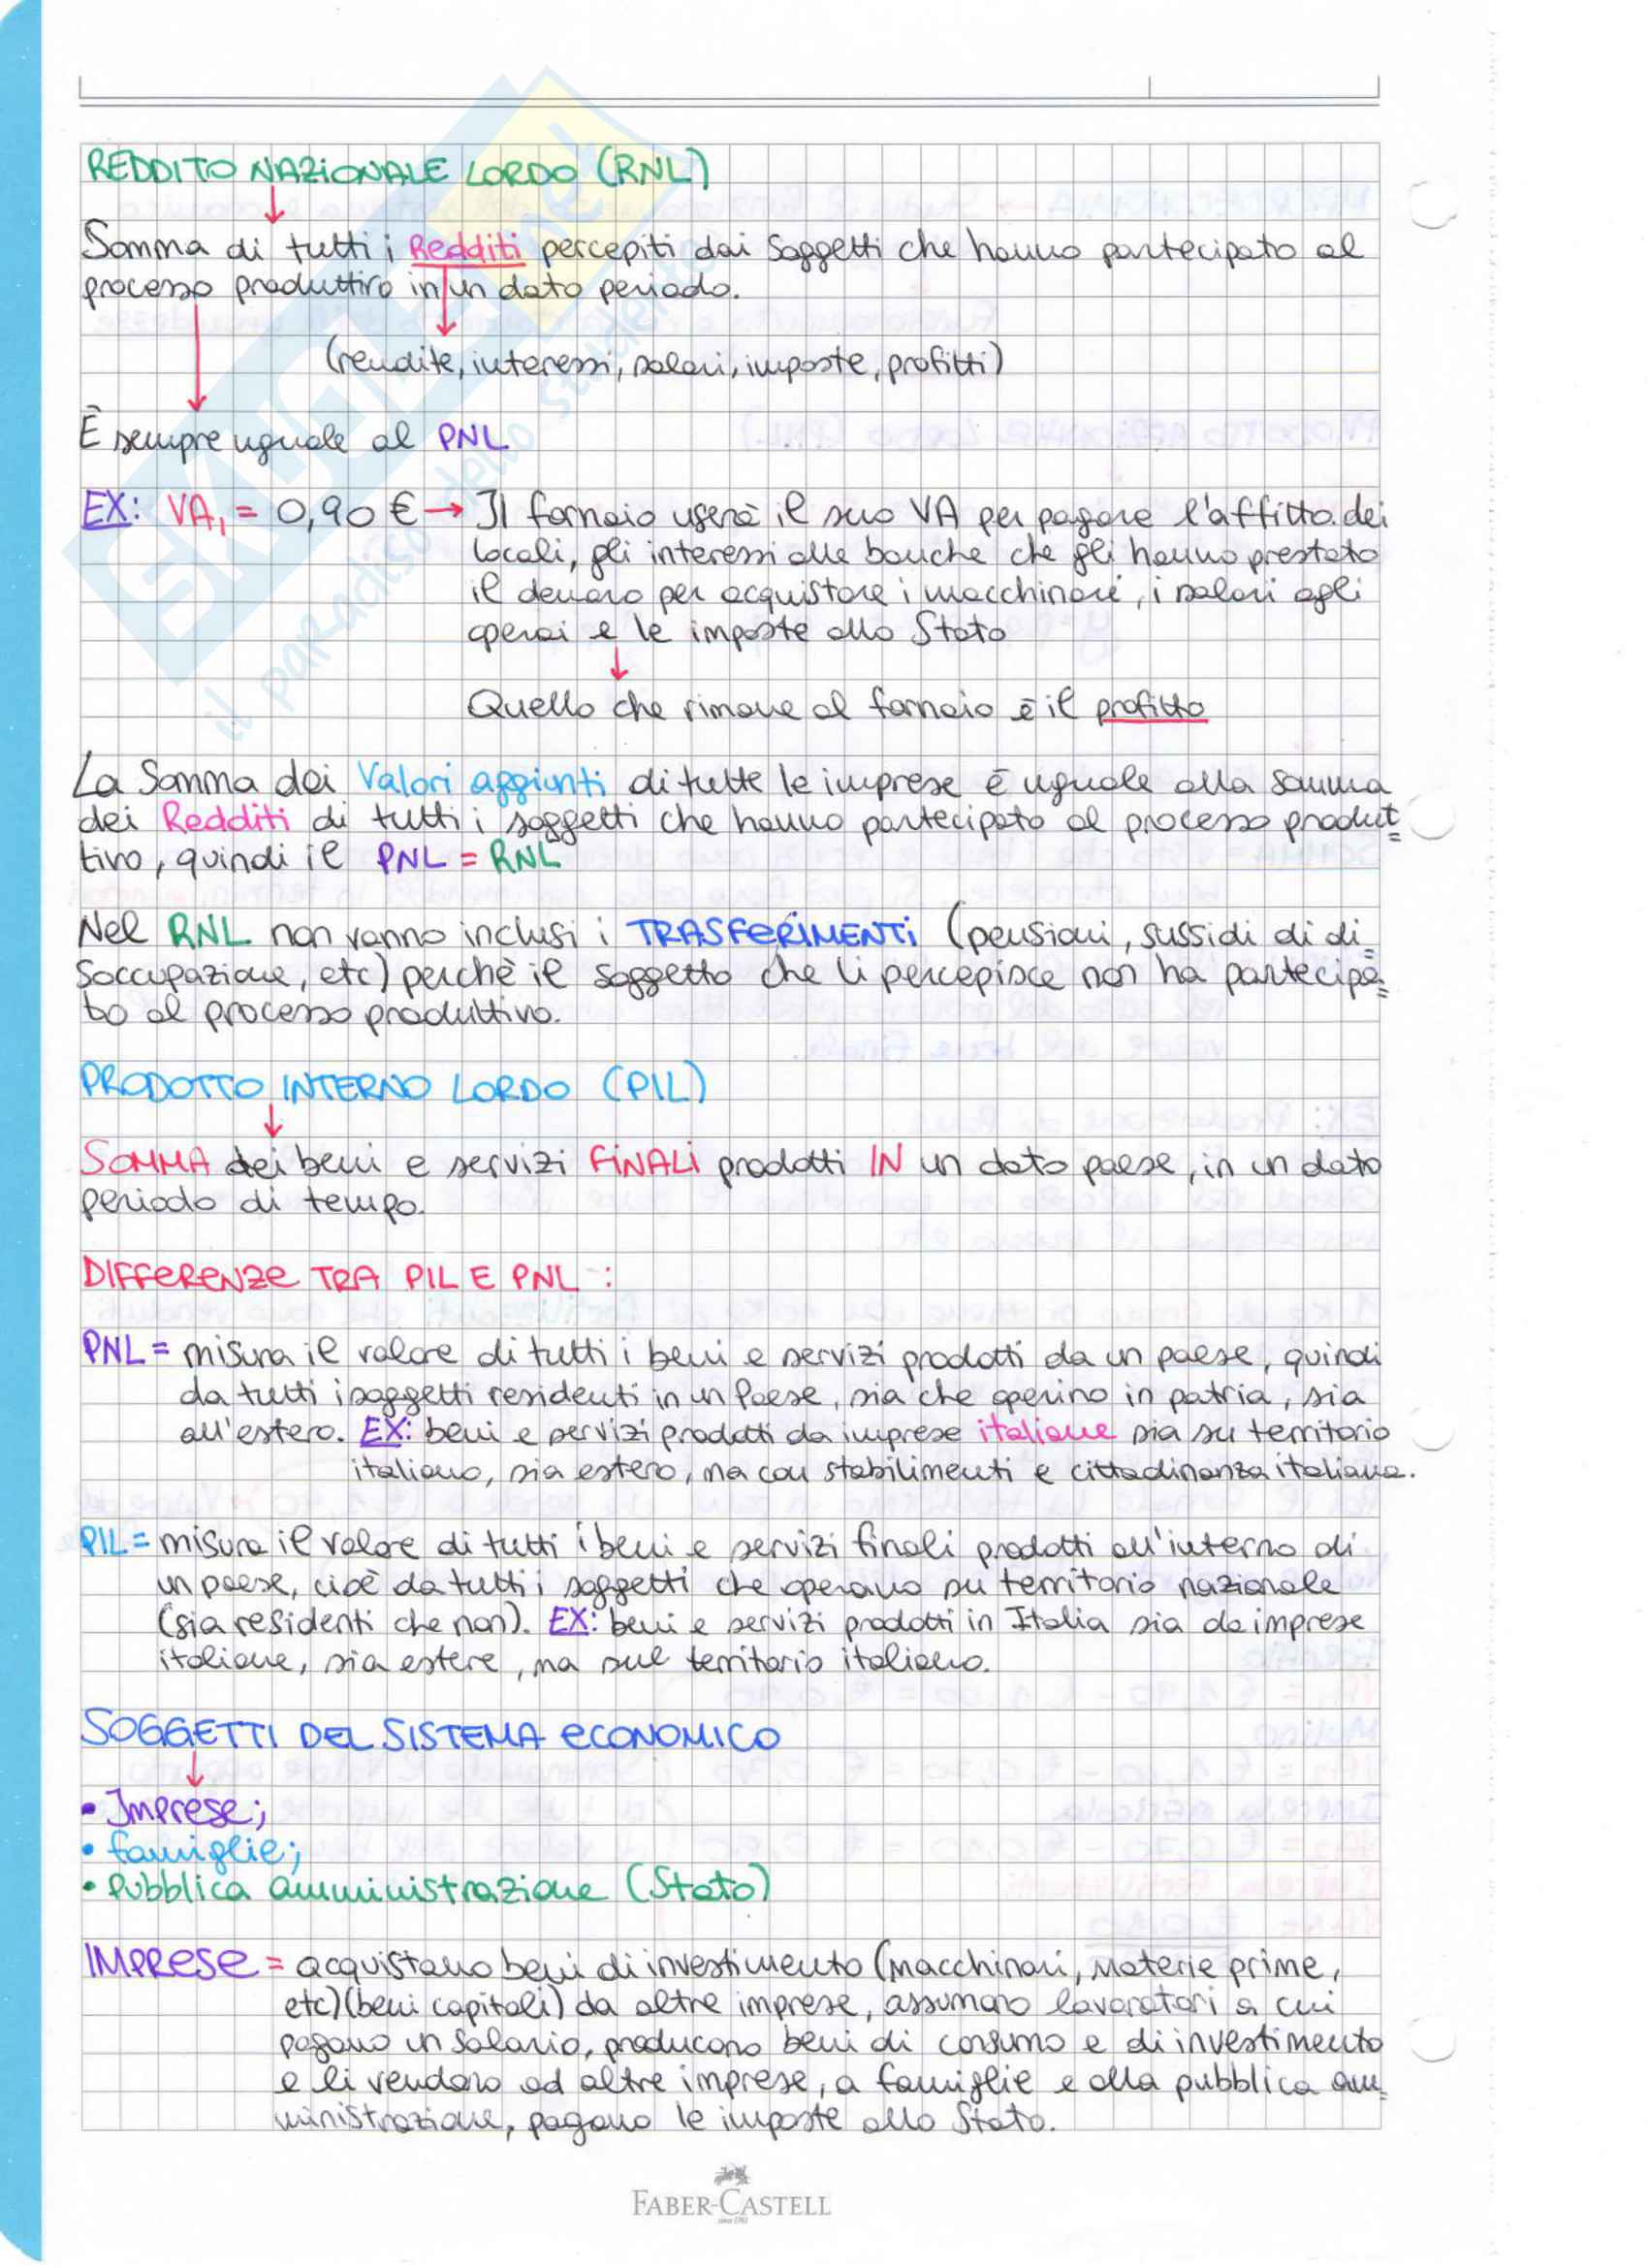 REDDITO NAZIONALE LORDO (RNL)
Somma di tutti i Redditi percepiti dai soggetti che hanno partecipato al
processo produttivo in un dato periodo.
(rendite, interessi, salari, imposte, profitti)
È sempre uguale al PNL
EX: VA₁ = 0,90 € → Il fornaio userà il suo VA per pagare l'affitto dei
locali, gli interessi alle banche che gli hanno prestato
il denaro per acquistare i macchinari, i salari agli
operai e le imposte allo Stato
Quello che rimane al fornaio è il profitto
La Somma dei Valori aggiunti di tutte le imprese è uguale alla somma
dei Redditi di tutti i soggetti che hanno partecipato al processo produt=
tivo, quindi il PNL = RNL
Nel RNL non vanno inclusi i TRASFERIMENTI (pensioni, sussidi di di=
soccupazione, etc) perchè il soggetto che li percepisce non ha partecipa=
to al processo produttivo.
PRODOTTO INTERNO LORDO (PIL)
SOMMA dei beni e servizi FINALI prodotti IN un dato paese, in un dato
periodo di tempo.
DIFFERENZE TRA PIL E PNL :
PNL = misura il valore di tutti i beni e servizi prodotti da un paese, quindi
da tutti i soggetti residenti in un Paese, sia che operino in patria, sia
all'estero. EX: beni e servizi prodotti da imprese italiane sia su territorio
italiano, sia estero, ma con stabilimenti e cittadinanza italiana.
PIL = misura il valore di tutti i beni e servizi finali prodotti all'interno di
un paese, cioè da tutti i soggetti che operano su territorio nazionale
(sia residenti che non). EX: beni e servizi prodotti in Italia sia da imprese
italiane, sia estere, ma sul territorio italiano.
SOGGETTI DEL SISTEMA ECONOMICO
• Imprese;
• famiglie;
• Pubblica amministrazione (Stato)
IMPRESE = acquistano beni di investimento (macchinari, materie prime,
etc) (beni capitali) da altre imprese, assumono lavoratori a cui
pagano un salario, producono beni di consumo e di investimento
e li vendono ad altre imprese, a famiglie e alla pubblica am=
ministrazione, pagano le imposte allo Stato.
FABER-CASTELL
since 1761
il paradiso dello studente